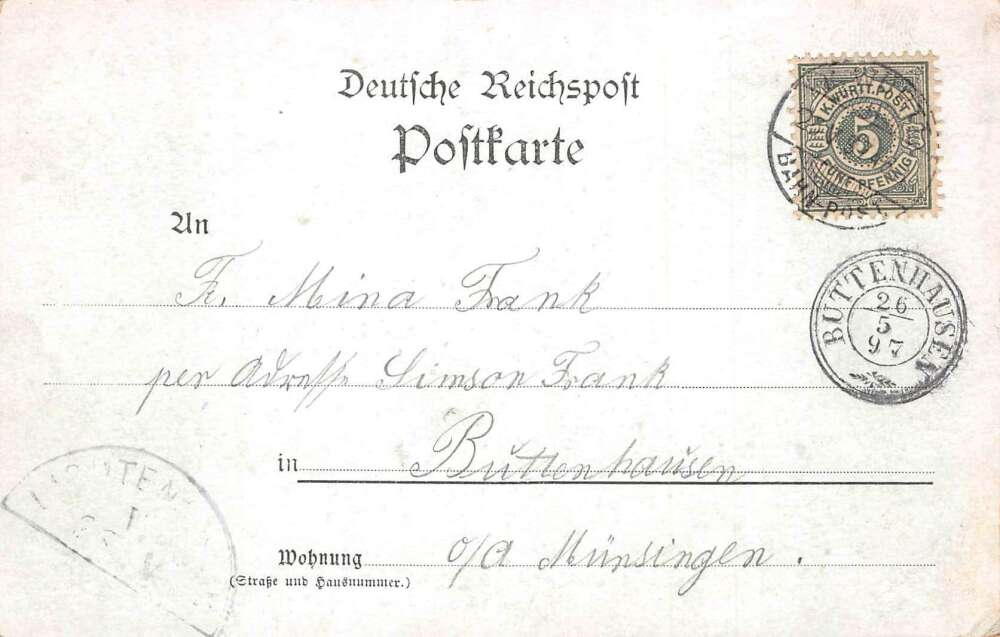 Deutsche Reichspost
Postkarte
K. WÜRTT. POST
5
FÜNF PFENNIG
BAHN-POST
An
Fr. Mina Frank
BUTTENHAUSEN
26
5
97
per Adresse Simson Frank
in Buttenhausen
Wohnung o/a Münsingen.
(Straße und Hausnummer.)